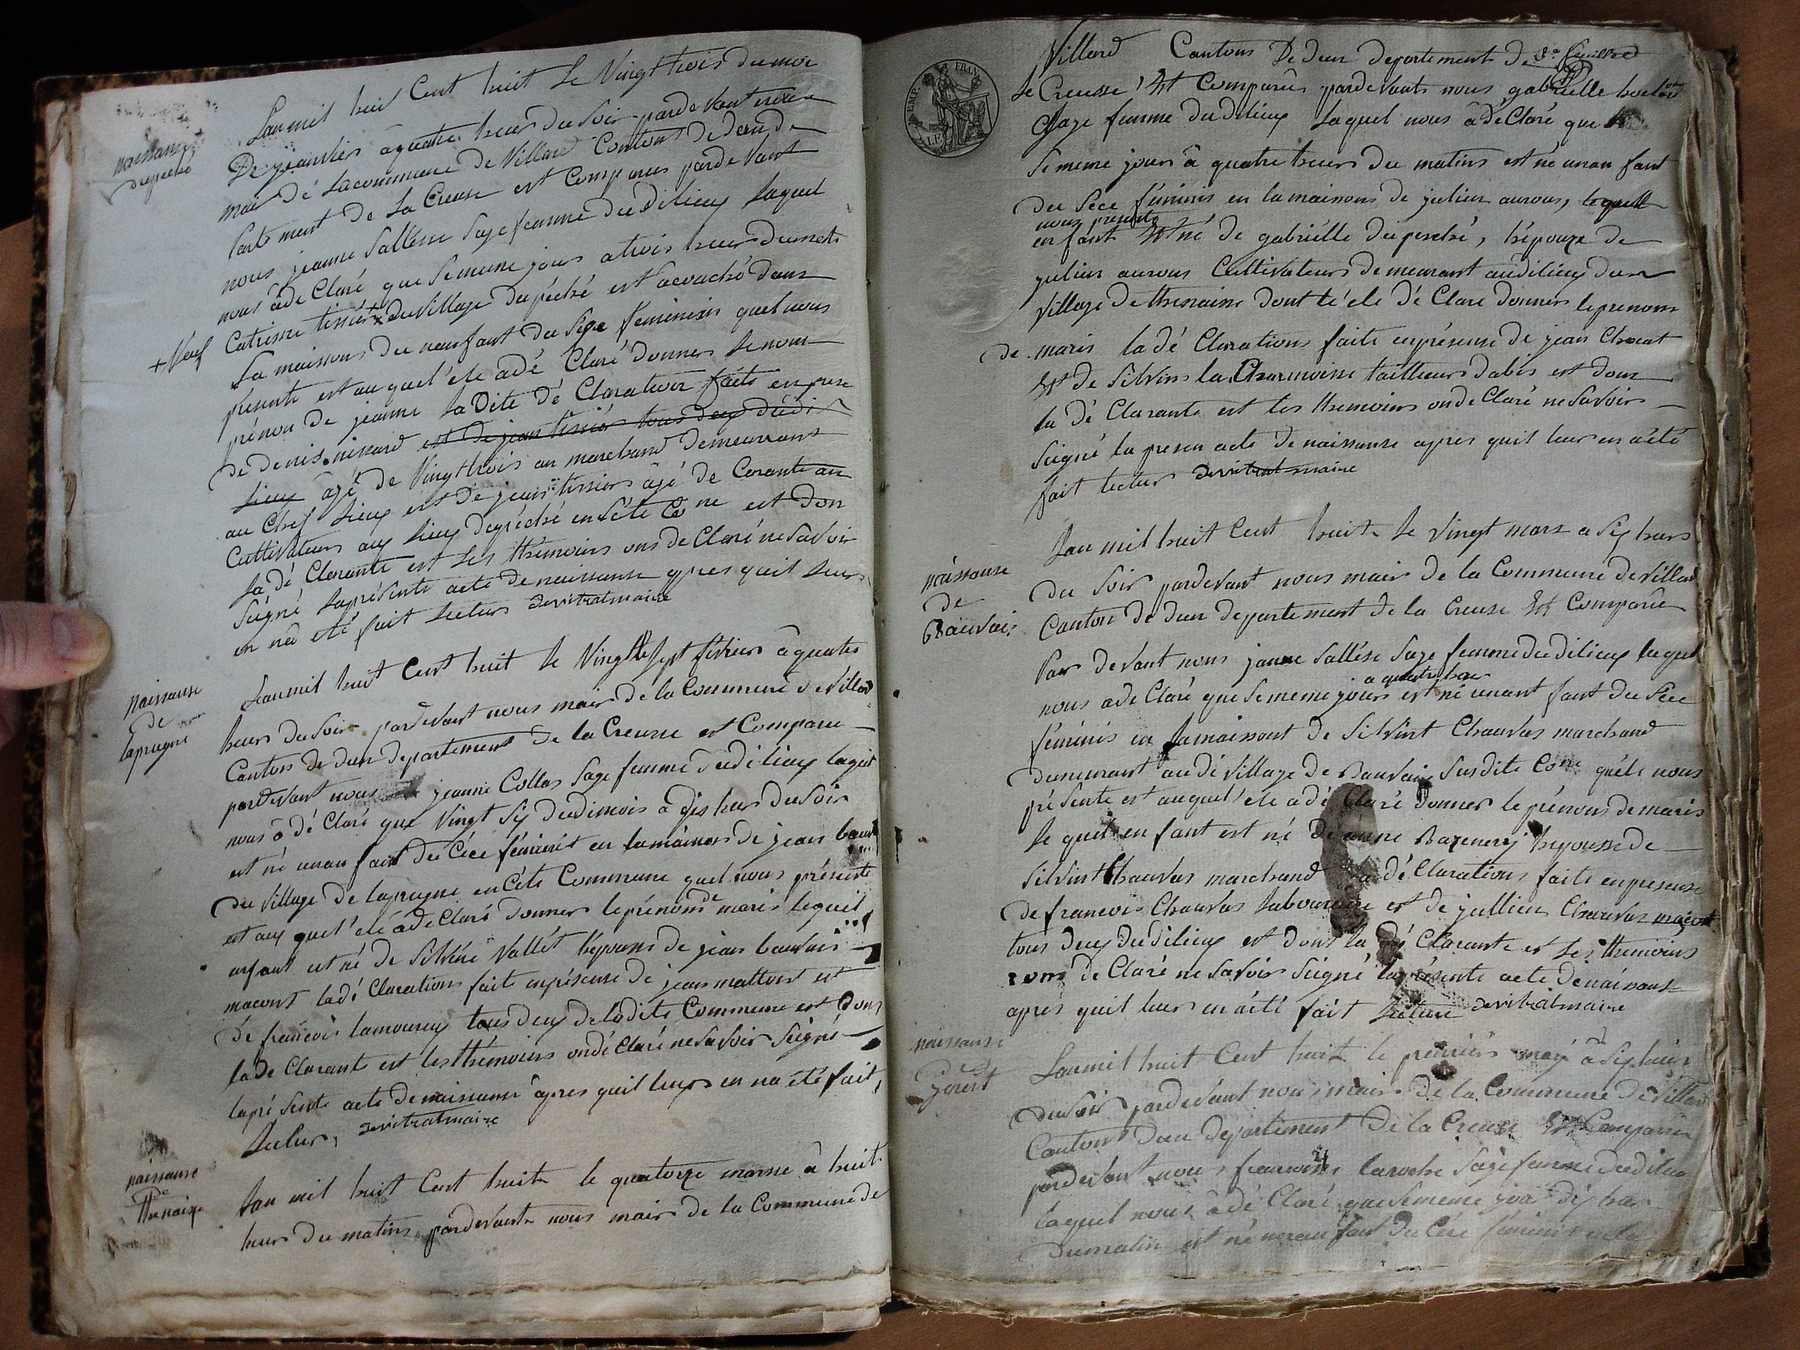 naissance
dupéché
Lan mil huit Cent huit le Vingt trois du moi
De jeanvier a quatre heur du Soir pardevant nous
mair dé La commune de Villard Conton De dun de
parte ment de La Creuse est Comparus par de Vant
nous jeanne Sallesse Saje femme du Dilieux laquel
nous â de Claré que Se meme jour a trois heur du mat
+ Neuf
Catrinne tixier x du Village dupéché est acouché dans
Sa maisons du neu fant du Sexe feminin quel nous
présente est au quel'ele â dé Claré donner le nom
prénon de jeanne La Dite dé Claration faite en prese
de denis minard est de jean tixier tous deux dudi
Lieux agé de Vingt trois an marchand demeurant
au Chef Lieux est de jean tixier âgé de Carante an
Cultivateur aux Lieux dupéché en Séte Cone est don
La dé Clarante est Les thémoins ons de Claré ne Savoir
Seigné La présente acte de naissanse apres quil Leur
en nâ été fait Lectur devitrat maire
naissanse
de
Laprugne
Lan mil huit Cent huit le Vingt Sept février â quatre
heurs du Soir pardevant nous mair de la Commune de Villard
Canton de dun departement de la Creuse est Comparue
pardevant nous jeanne Collas Saje femme dudilieux laquel
nous â dé Claré que Vingt Six dudimois â dix heur du Soir
est né unan fant du Céce féminit en la maison de jean beauv
du Village de laprugne en Céte Commune quel nous présente
est aux quel'ele â dé Claré donner le prénom de marie lequel
anfant est né de Silvéne Vallét hépouse de jean bauvais
macons la dé Claration fait en présense de jean mattont est
de francois lamoureux tous deux de ladite Commune est dont
la de Clarant est les thémoins on dé Claré ne Savoir Seigné
la pré Sente acte de naissanse âpres quil leurs en nâ été fait
Lectur, devitrat maire
naissanse
de
thenaize
Lan mil huit Cent huit le quatorze marse â huit
heur du matins pardevant nous mair de la Commune de
Villard Cantons De dun departement de
la Creusse Est Comparûs pardevant nous gabrielle
Saje femme du dilieux Laquel nous â de Claré que
Se meme jour â quatre heurs du matins est né unan fant
du Séce féminis en la maisons de julien aurous, lequell
nous présente
en fant Est né de gabriélle dupéché, hépouze de
julien aurous Cultivateurs demeurant audilieux du
Village de thenaise dont lé ele dé Clare donner le prenom
de marie la dé Claration faite en présense de jean Chocat
Est de Silvins la Charmoise tailleur dabis est dont
la dé Clarante est les themoins on de Claré ne Savoir
Seigné la presen acte de naissanse apres quil leur en â été
fait lectur devitrat maire
naissanse
de
Bauvais
Lan mil huit Cent huit le Vingt mars a Six heurs
du Soir pardevant nous mair de la Commune de Villard
Canton de dun departement de la Creuse Est Comparûe
Par devant nous jeanne Sallése Saje femme dudilieux laquel
a quatre heur
nous â de Claré que Se meme jours est né unant fant du Séce
féminis en la maisont de Silvint Chauvas marchand
demeurant au di Village de Bauvais Susdite Cone quele nous
présente est auquel'ele â dé Claré donner le prénom de marie
le quel en fant est né de anne Bazenery hepousse de
Silvint Chauvas marchand La dé Claration faite en presense
de francois Chauvas Laboureur est de jullien Chauvas maçont
tous deux dudilieux est dont la dé Clarante est Les themoins
ont dé Claré ne Savoir Seigné la présente acte de naissanse
apres quil leur en â été fait Lecture devitrat maire
naissanse
Lan mil huit Cent huit le premier may â Six heur
du Soir pardevant nous mair de la Commune de Villard
Cantont dun departement De la Creuse Est Comparûe
pardevant nous francoise laroche Saje femme dudilieu
laquel nous â dé Claré que Sememe jour dix heur
du matin est né unan fant du Céce féminit